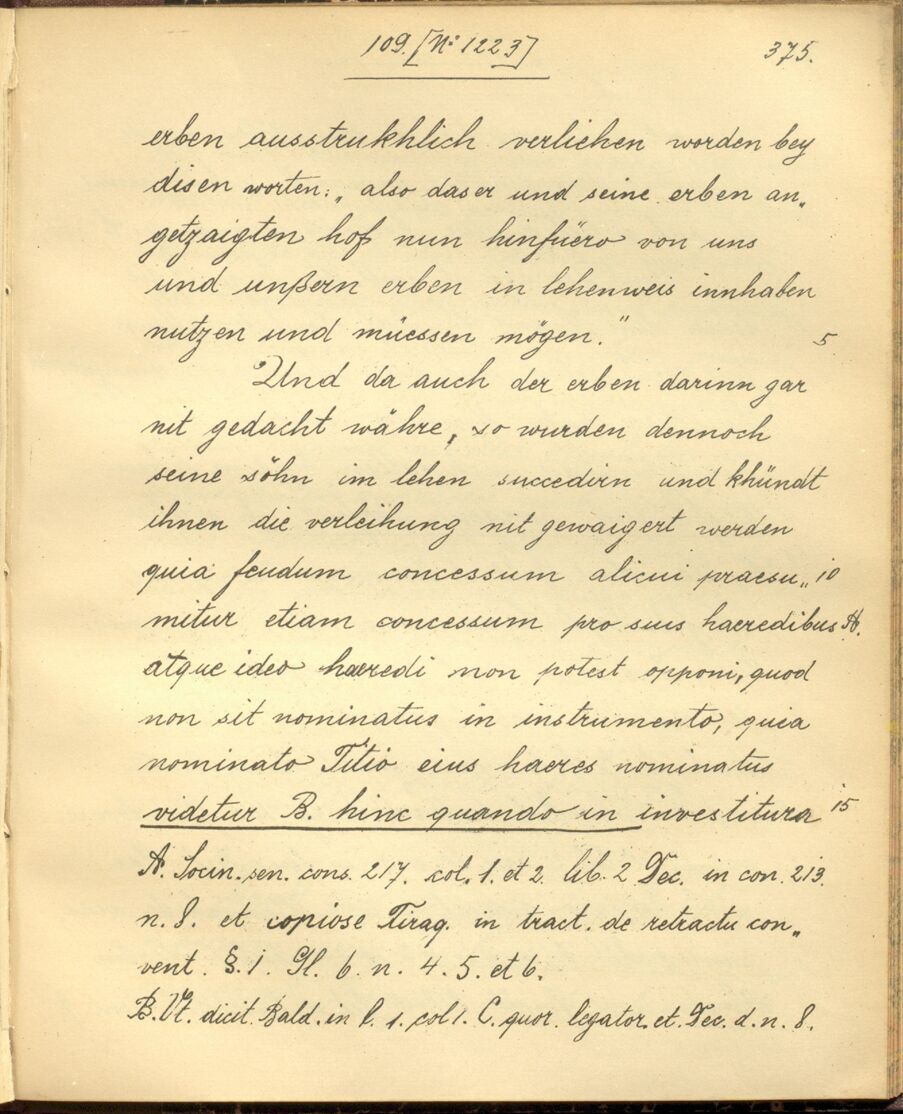 109. [No 1223]
375.
erben ausstrukhlich verliehen worden bey
disen worten: „ also das er und seine erben an„
getzaigten hof nun hinfüero von uns
und unßern erben in lehenweis innhaben
nutzen und müessen mögen.“ 5
Und da auch der erben darinn gar
nit gedacht währe, so wurden dennoch
seine söhn im lehen succedirn und khündt
ihnen die verleihung nit gewaigert werden
quia feudum concessum alicui praesu„ 10
mitur etiam concessum pro suis haeredibus A.
atque ideo haeredi non potest opponi, quod
non sit nominatus in instrumento, quia
nominato Titio eius haeres nominatus
videtur B. hinc quando in investitura 15
A. Socin. sen. cons. 217. col. 1. et 2. lib. 2 Dec. in con. 213.
n. 8. et copiose Tiraq. in tract. de retractu con„
vent. §. 1. Gl. 6. n. 4. 5. et 6.
B. Vt. dicit Bald. in l. 1. col 1. C. quor. legator. et. Dec. d. n. 8.